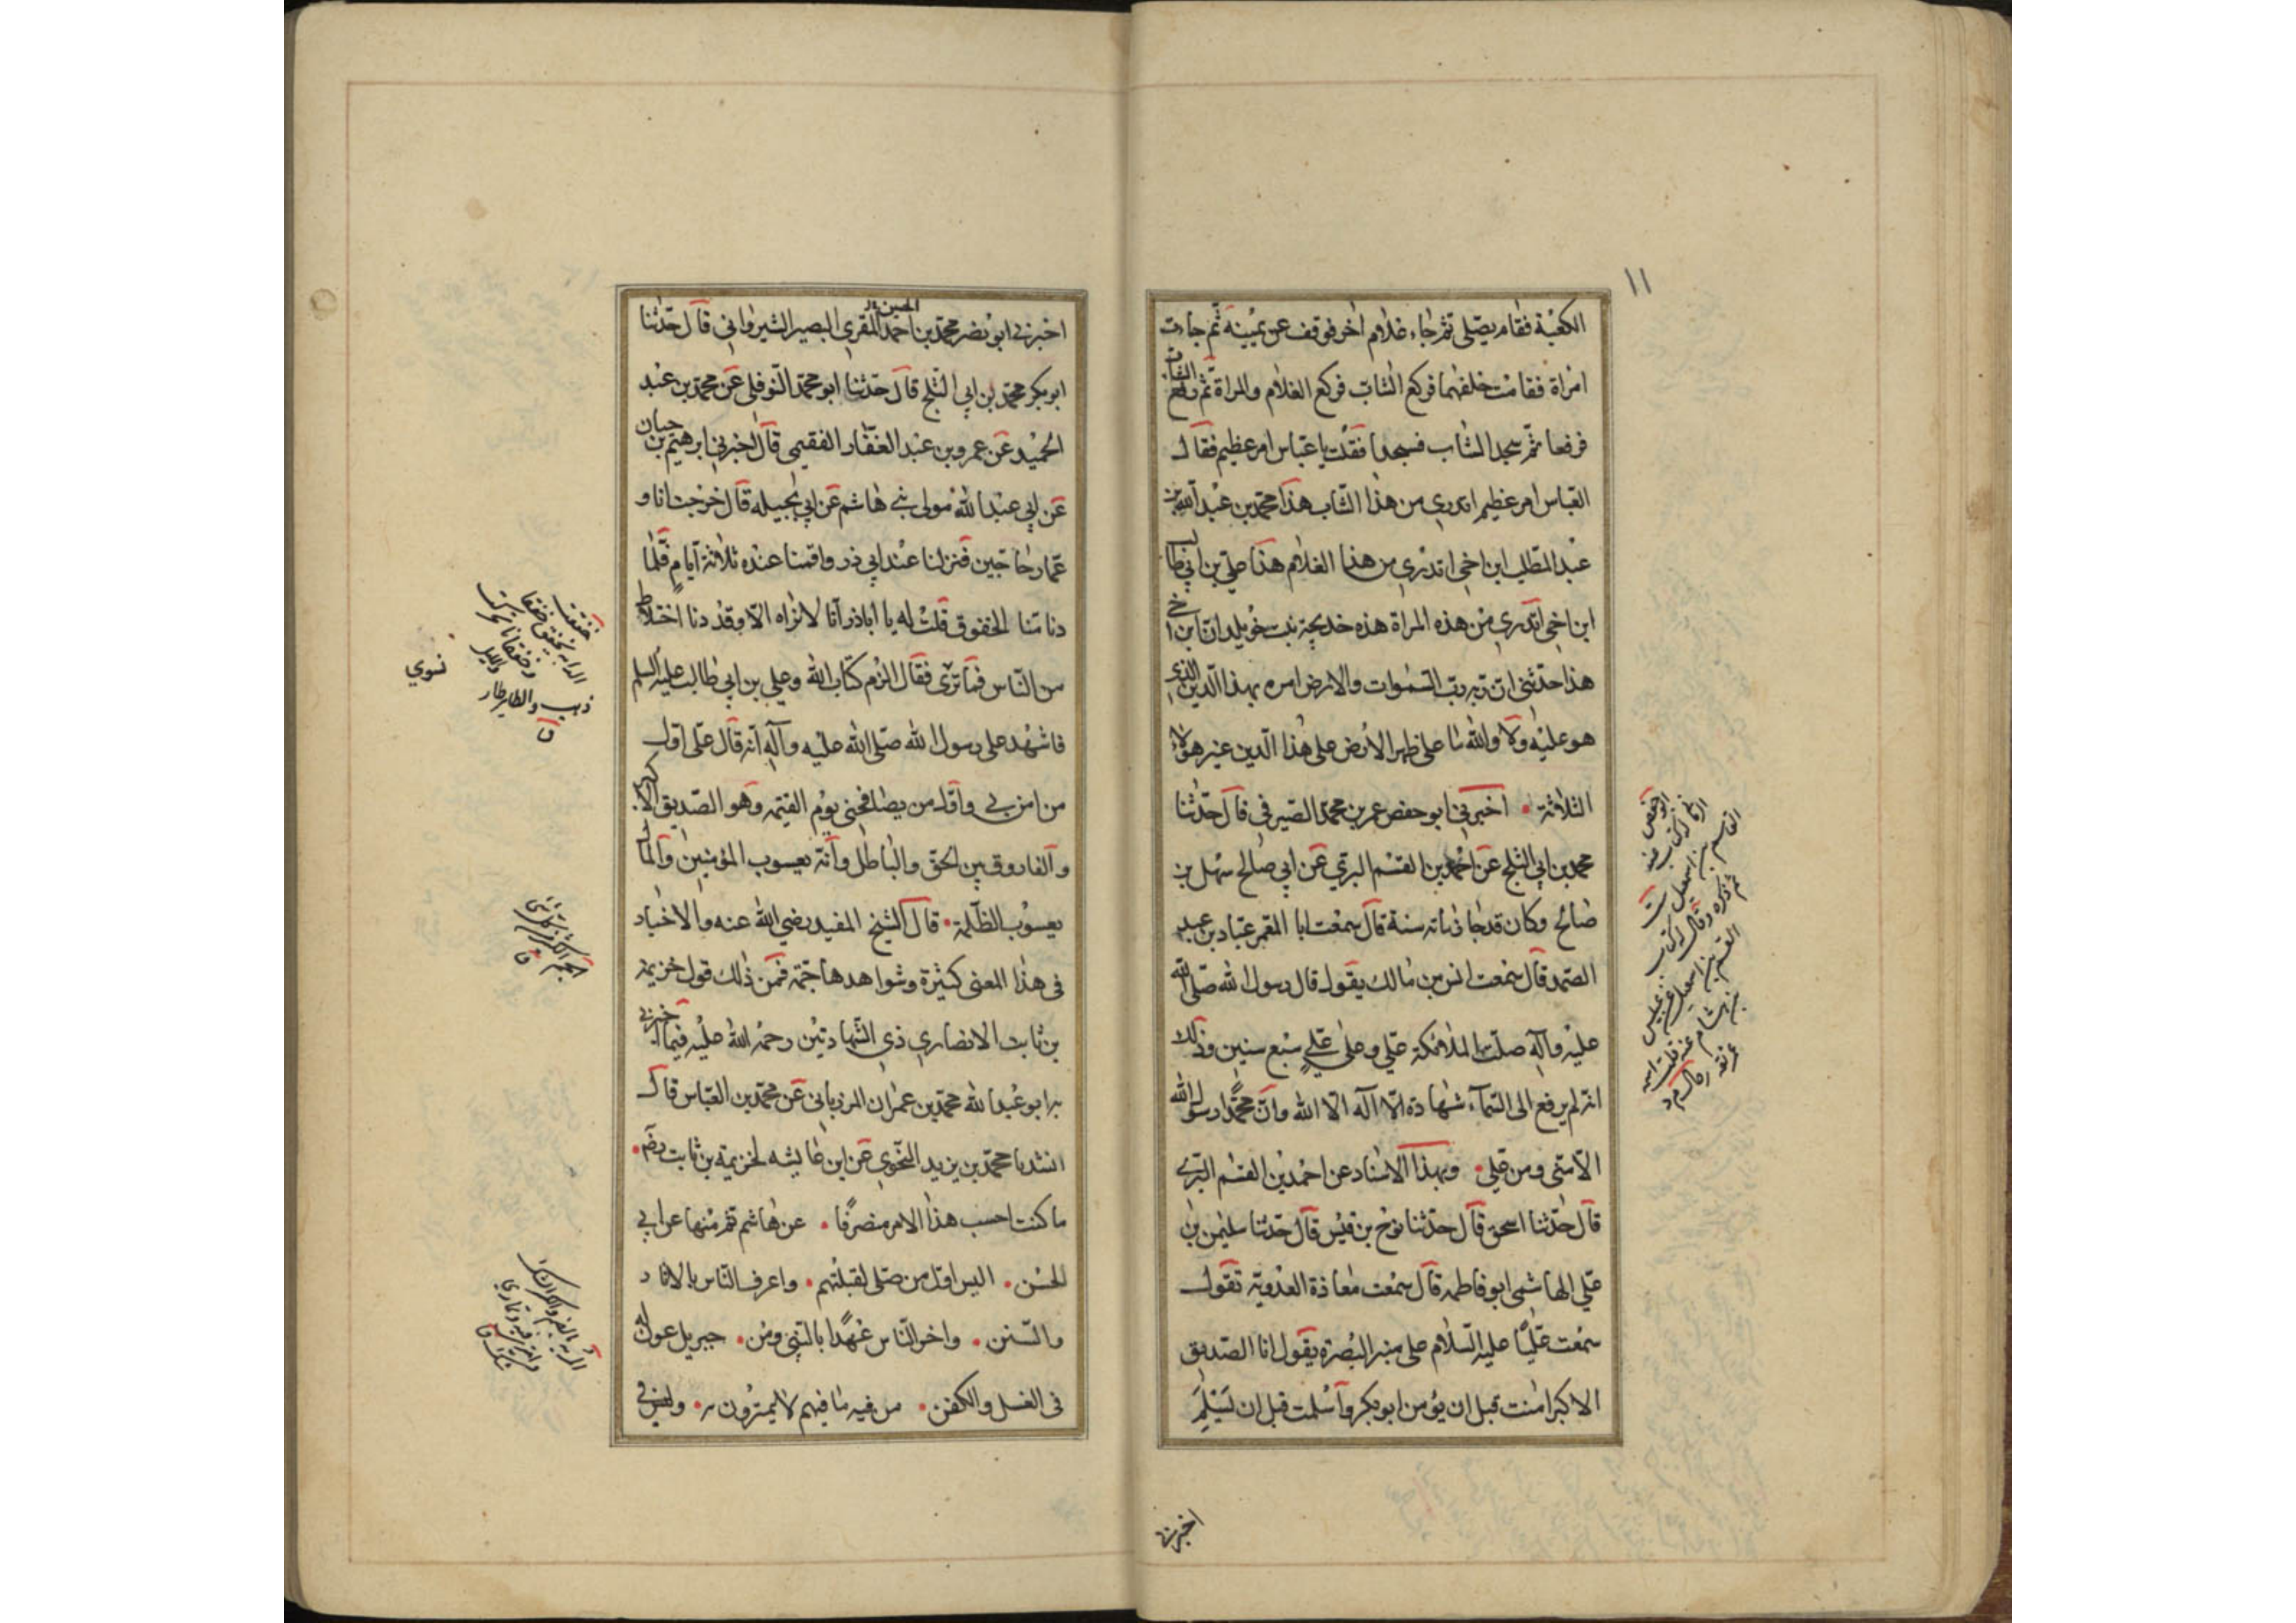 ١١
الكعبة فقام يصلي ثم جاء غلام اخر فوقف عن يمينه ثم جاءت
امراة فقامت خلفهما فركع الشاب فركع الغلام والمراة ثم رفع الشاب
فرفعا ثم سجد الشاب فسجدا فقلت يا عباس امر عظيم فقال
العباس امر عظيم اتدري من هذا الشاب هذا محمد بن عبد الله بن
عبد المطلب ابن اخي اتدري من هذا الغلام هذا علي بن ابي طالب
ابن اخي اتدري من هذه المراة هذه خديجة بنت خويلد ان ابن اخي
هذا حدثني ان ربه رب السموات والارض امره بهذا الدين الذي
هو عليه ولا والله ما على ظهر الارض على هذا الدين غير هؤلاء
الثلاثة • اخبرني ابو حفص عمر بن محمد الصيرفي قال حدثنا
محمد بن ابي الثلج عن احمد بن القسم البرتي عن ابي صالح سهل بن
صالح وكان قد جاز مائة سنة قال سمعت ابا المعمر عباد بن عبد
الصمد قال سمعت انس بن مالك يقول قال رسول الله صلى الله
عليه وآله صلت الملائكة علي وعلى علي سبع سنين وذلك
انه لم يرفع الى السمآء شهادة الا آله الا الله وان محمدا رسول الله
الا منى ومن علي • وبهذا الاسناد عن احمد بن القسم البرتي
قال حدثنا اسحق قال حدثنا نوح بن قيس قال حدثنا سليمن بن
علي الهاشمي ابو فاطمه قال سمعت معاذة العدوية تقول
سمعت عليا عليه السلام على منبر البصرة يقول انا الصديق
الاكبر امنت قبل ان يؤمن ابو بكر واسلمت قبل ان يسلم
اخبرني
اخبرني ابو نصر محمد بن احمد المقري البصير الشيرواني قال حدثنا
الحسين
ابو بكر محمد بن ابي الثلج قال حدثنا ابو محمد النوفلي عن محمد بن عبد
الحميد عن عمرو بن عبد الغفار الفقيمي قال اخبرني ابرهيم بن حيان
عن ابي عبد الله مولى بني هاشم عن ابي نجيله قال خرجت انا و
عمار حاجين فنزلنا عند ابي ذر واقمنا عنده ثلاثة ايام فلما
دنا منا الخفوق قلت له يا اباذر انا لا نراه الا وقد دنا اختلاط
من الناس فما ترى فقال الزم كتاب الله وعلي بن ابي طالب عليه السلم
فاشهد على رسول الله صلى الله عليه وآله انه قال علي اول
من امن بي واول من يصافحني يوم القيمه وهو الصديق الاكبر
والفاروق بين الحق والباطل وانه يعسوب المؤمنين والمال
يعسوب الظلمة • قال الشيخ المفيد رضي الله عنه والاخبار
في هذا المعنى كثيرة وشواهدها جمة فمن ذلك قول خزيمة
بن ثابت الانصاري ذي الشهادتين رحمه الله عليه فيما اخبرني
به ابو عبد الله محمد بن عمران المرزباني عن محمد بن العباس قال
انشدنا محمد بن يزيد النحوي عن ابن عايشه لخزيمة بن ثابت رضه •
ما كنت احسب هذا الامر منصرفا • عن هاشم ثم منها عن ابي
الحسن • اليس اول من صلى لقبلتهم • واعرف الناس بالاثار
والسنن • واخر الناس عهدا بالنبي ومن • جبريل عون له
في الغسل والكفن • من فيه ما فيهم لا يمترون به • وليس في
نسوي